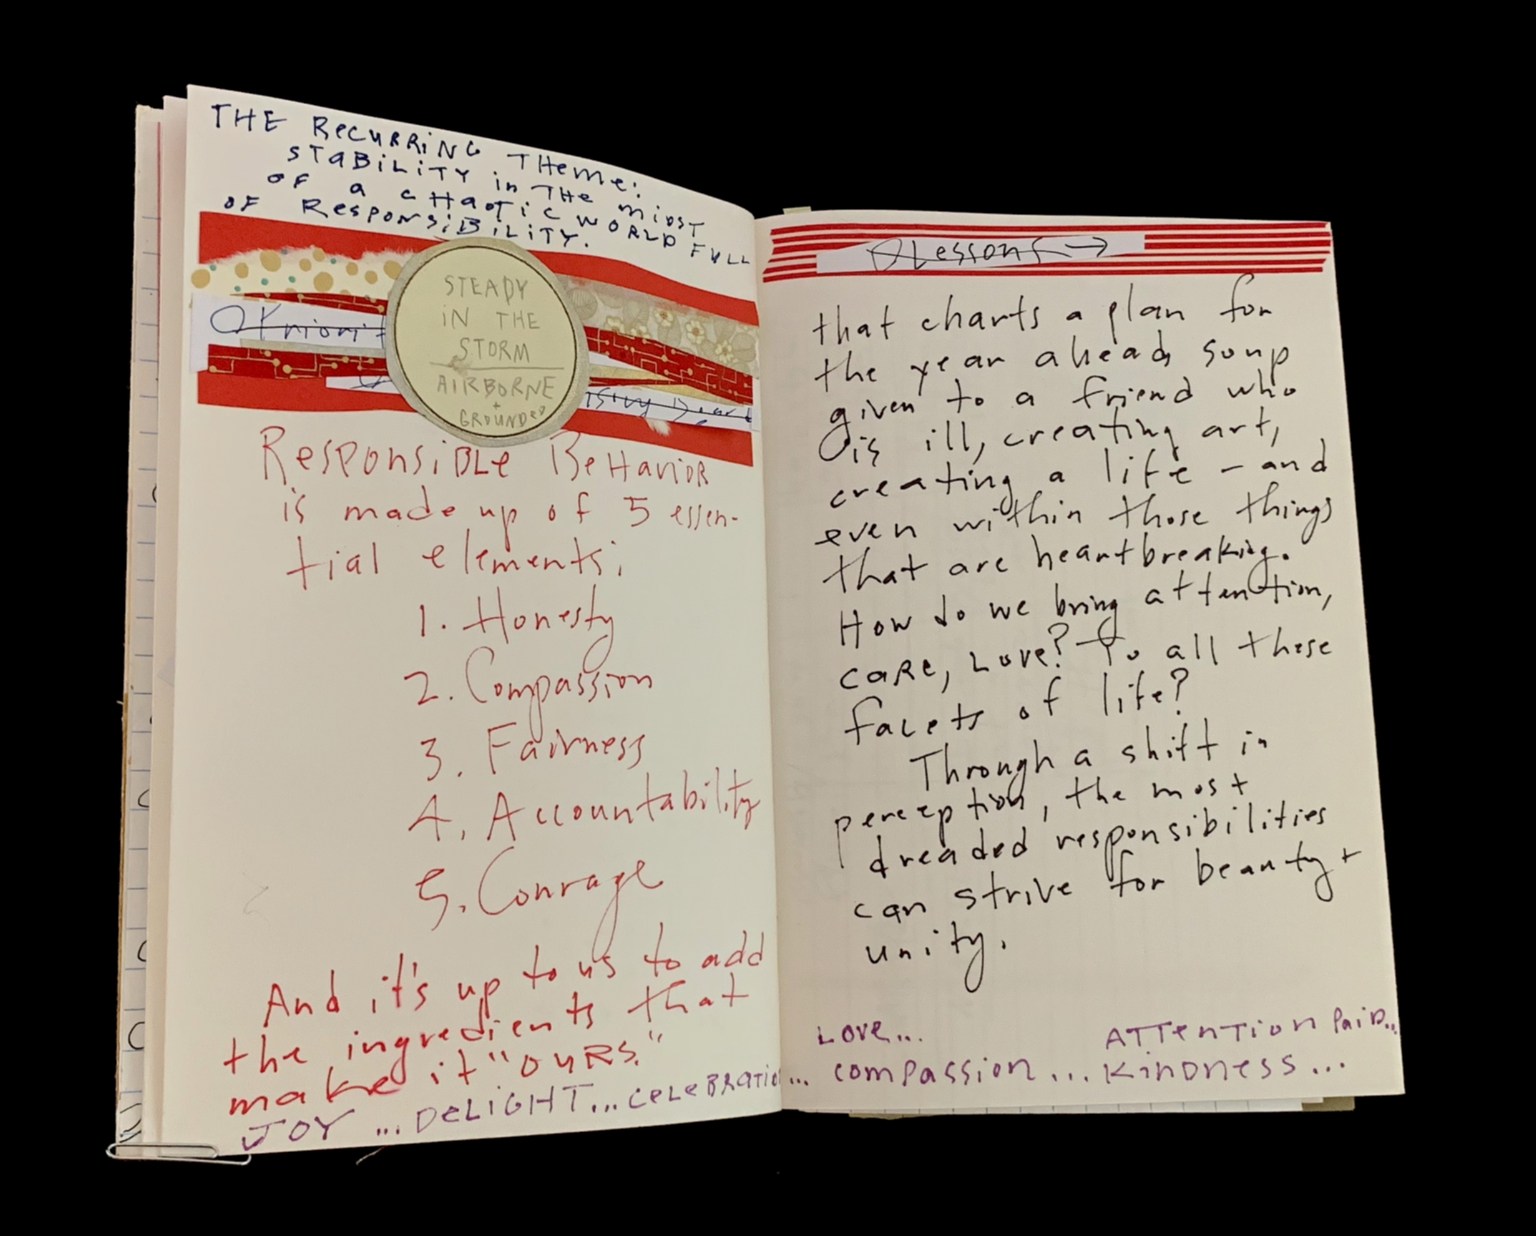 THE RECURRING THEME:
STABILITY in THE MIDST
OF a CHAOTIC WORLD FULL
OF RESPONSIBILITY.
STEADY
iN THE
STORM
AIRBORNE
+
GROUNDED
Responsible Behavior
is made up of 5 essen-
tial elements:
1. Honesty
2. Compassion
3. Fairness
4. Accountability
5. Courage
And it's up to us to add
the ingredients that
make it "OURS."
JOY ... DELIGHT... CELEBRATION...
Lessons →
that charts a plan for
the year ahead, soup
given to a friend who
is ill, creating art,
creating a life - and
even within those things
that are heartbreaking.
How do we bring attention,
care, Love? To all these
facets of life?
Through a shift in
perception, the most
dreaded responsibilities
can strive for beauty +
unity.
LOVE... ATTENTION PAID...
COMPASSION ... KINDNESS...